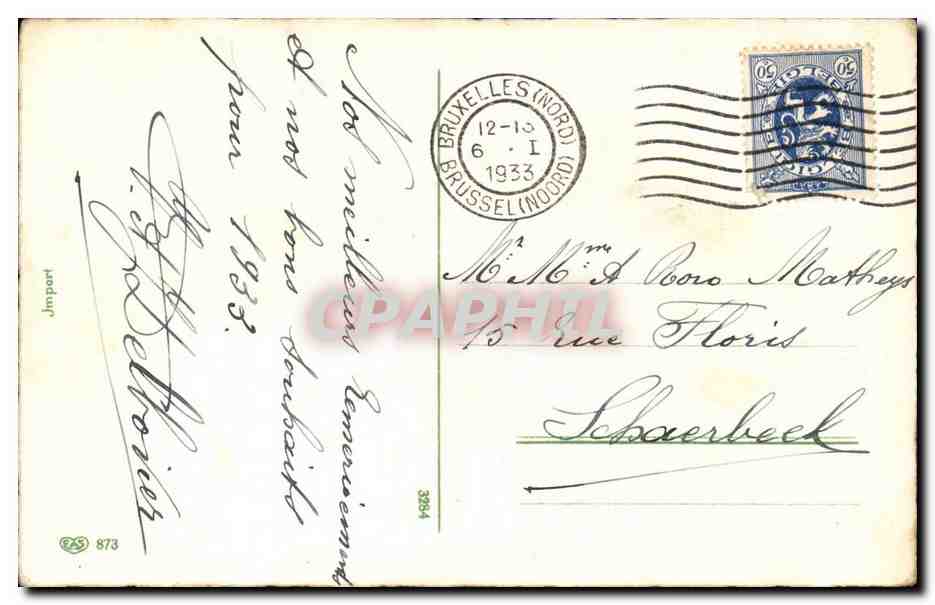 Nos meilleurs remerciements
et nos bons souhaits
pour 1933.
Delbovier
BRUXELLES (NORD)
12-13
6 · I
1933
BRUSSEL (NOORD)
50 50
BELGIQUE BELGIE
Mr. Mme. A Roro Matheys
15 Rue Floris
Schaerbeek
CPAPHIL
Jmport
3284
EAS 873